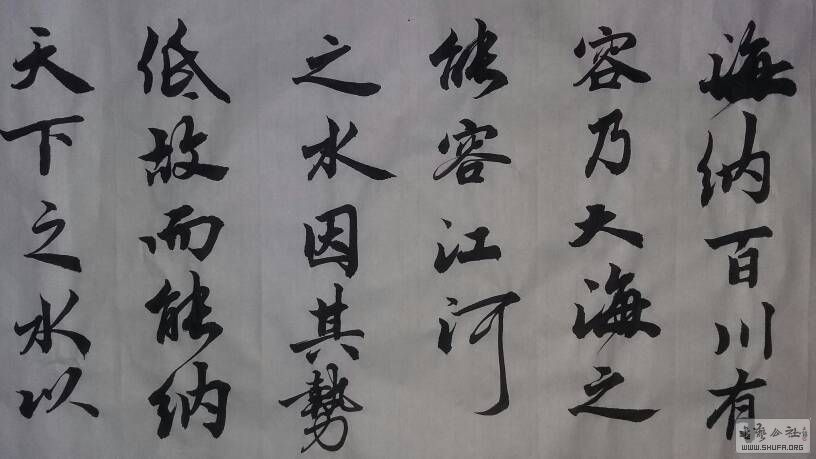 海纳百川有
容乃大海之
能容江河
之水因其勢
低故而能纳
天下之水以
WWW.SHUFA.ORG